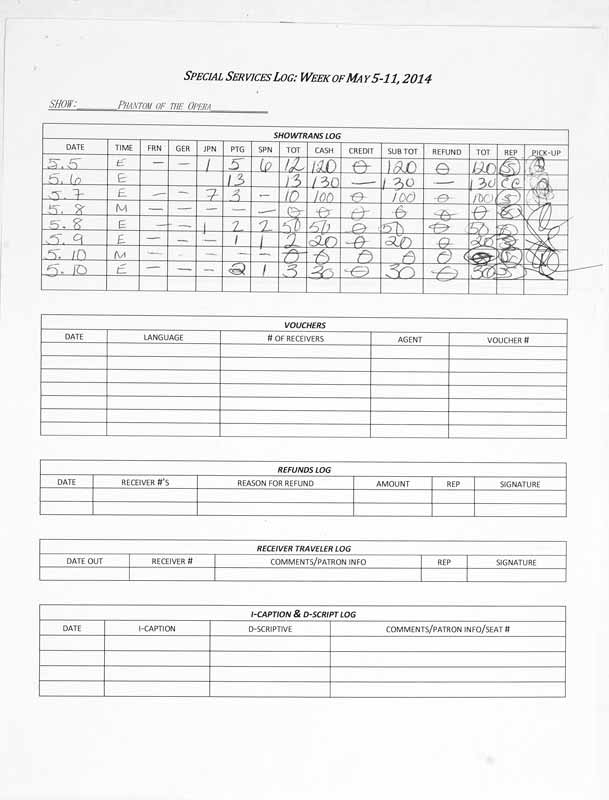 SPECIAL SERVICES LOG: WEEK OF MAY 5-11, 2014
SHOW: PHANTOM OF THE OPERA
SHOWTRANS LOG
DATE TIME FRN GER JPN PTG SPN TOT CASH CREDIT SUB TOT REFUND TOT REP PICK-UP
5.5 E — — 1 5 6 12 120 0 120 0 120 S
5.6 E 13 13 130 — 130 — 130 CC
5.7 E — — 7 3 - 10 100 0 100 0 100 S
5.8 M — — — — — 0 0 0 0 0 0
5.8 E — — 1 2 2 50 0 50 0 50
5.9 E — — - 1 1 2 20 0 20 0 20
5.10 M — — — — — 0 0 0 0 0
5.10 E — — — 2 1 3 30 0 30 0 30 S
VOUCHERS
DATE LANGUAGE # OF RECEIVERS AGENT VOUCHER #
REFUNDS LOG
DATE RECEIVER #'S REASON FOR REFUND AMOUNT REP SIGNATURE
RECEIVER TRAVELER LOG
DATE OUT RECEIVER # COMMENTS/PATRON INFO REP SIGNATURE
I-CAPTION & D-SCRIPT LOG
DATE I-CAPTION D-SCRIPTIVE COMMENTS/PATRON INFO/SEAT #